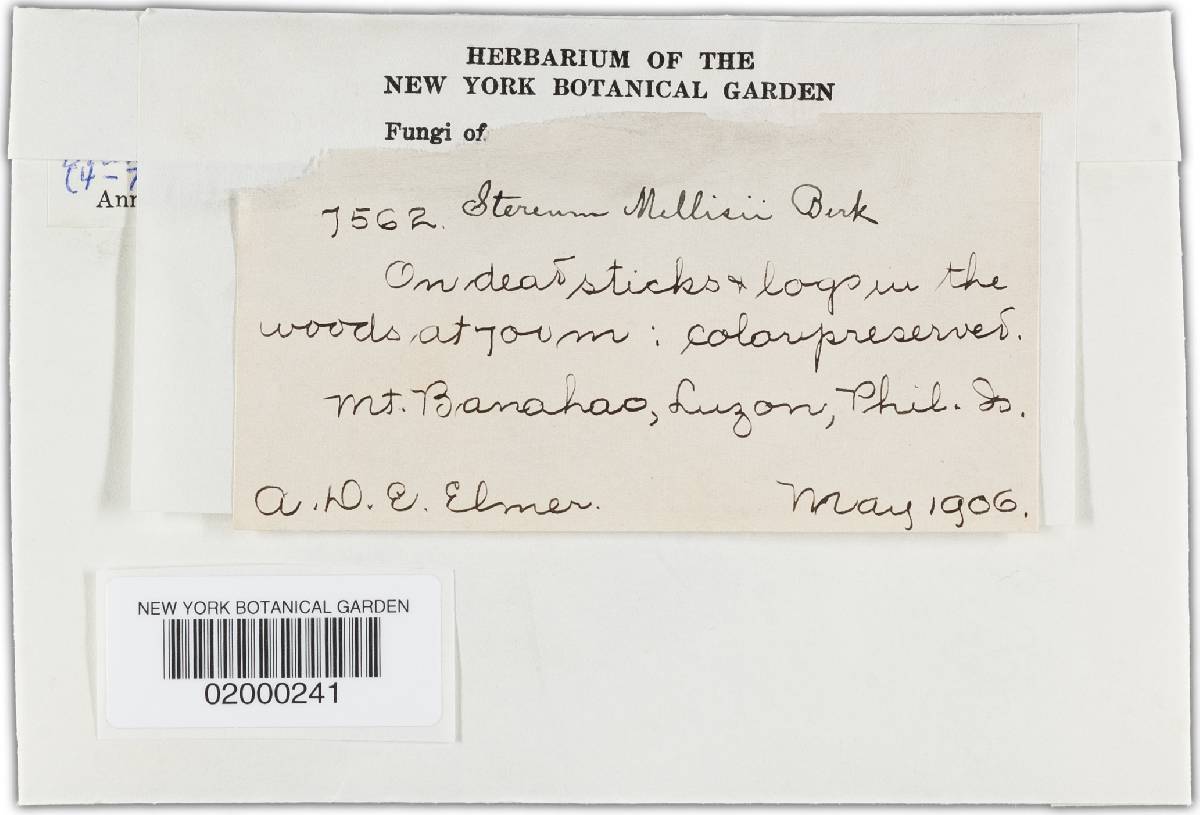 HERBARIUM OF THE
NEW YORK BOTANICAL GARDEN
Fungi of
(4-7
Ann
7562. Stereum Mellisii Berk
On dead sticks & logs in the
woods at 700 m : color preserved.
Mt. Banahao, Luzon, Phil. Is.
A. D. E. Elmer. May 1906.
NEW YORK BOTANICAL GARDEN
02000241